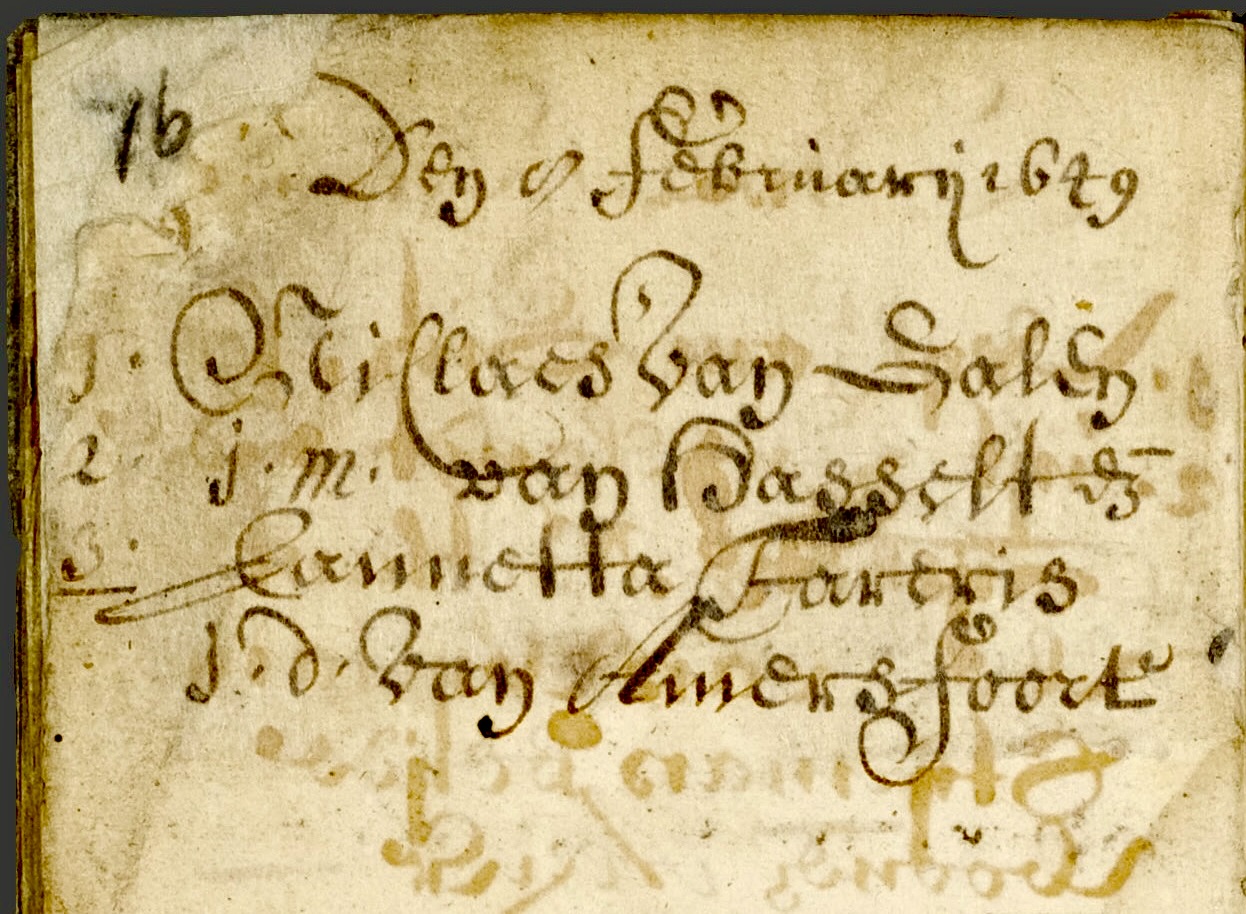 76
Den 8 february 1649
1. Niclaes van Dalen
2. j. m. van Hasselt en
3. Jannetta Tareris
J. d. van Amersfoort